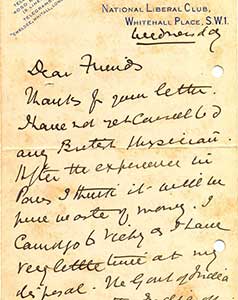 NATIONAL LIBERAL CLUB,
WHITEHALL PLACE, S.W.1.
Wednesday
Dear Friends
Thanks for your letter.
I have not yet consulted
any British Physician.
After the experience in
Paris I think it will be
pure waste of money. I
cannot go to Vichy as I have
very little time at my
disposal. The Govt of India